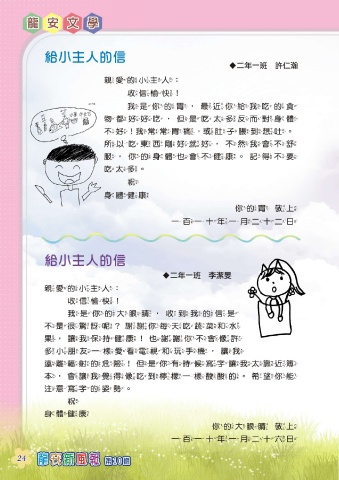 龍安文學
給小主人的信
◆二年一班 許仁瀚
親愛的小主人：
收信愉快！
我是你的胃，最近你給我吃的食
物都好好吃，但是吃太多反而對身體
不好！我常常胃痛，或肚子脹到想吐。
所以吃東西剛好就好，不然我會不舒
服，你的身體也會不健康。記得不要
吃太多。
祝
身體健康
你的胃 敬上
一百一十年一月二十二日
給小主人的信
◆二年一班 李潔旻
親愛的小主人：
收信愉快！
我是你的大眼睛，收到我的信是
不是很驚訝呢？謝謝你每天吃蔬菜和水
果，讓我保持健康！也謝謝你不會像許
多小朋友一樣愛看電視和玩手機，讓我
遠離輻射的危險！但是你有時候寫字讓我太靠近簿
本，會讓我覺得像吃到檸檬一樣酸酸的。希望你能
注意寫字的姿勢。
祝
身體健康
你的大眼睛 敬上
一百一十年一月二十六日
24